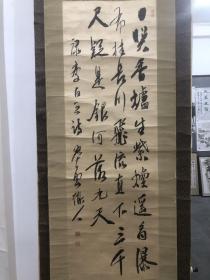 日照香爐生紫煙遥看瀑
布挂長川飛流直下三千
尺疑是銀河落九天
録李白之詩